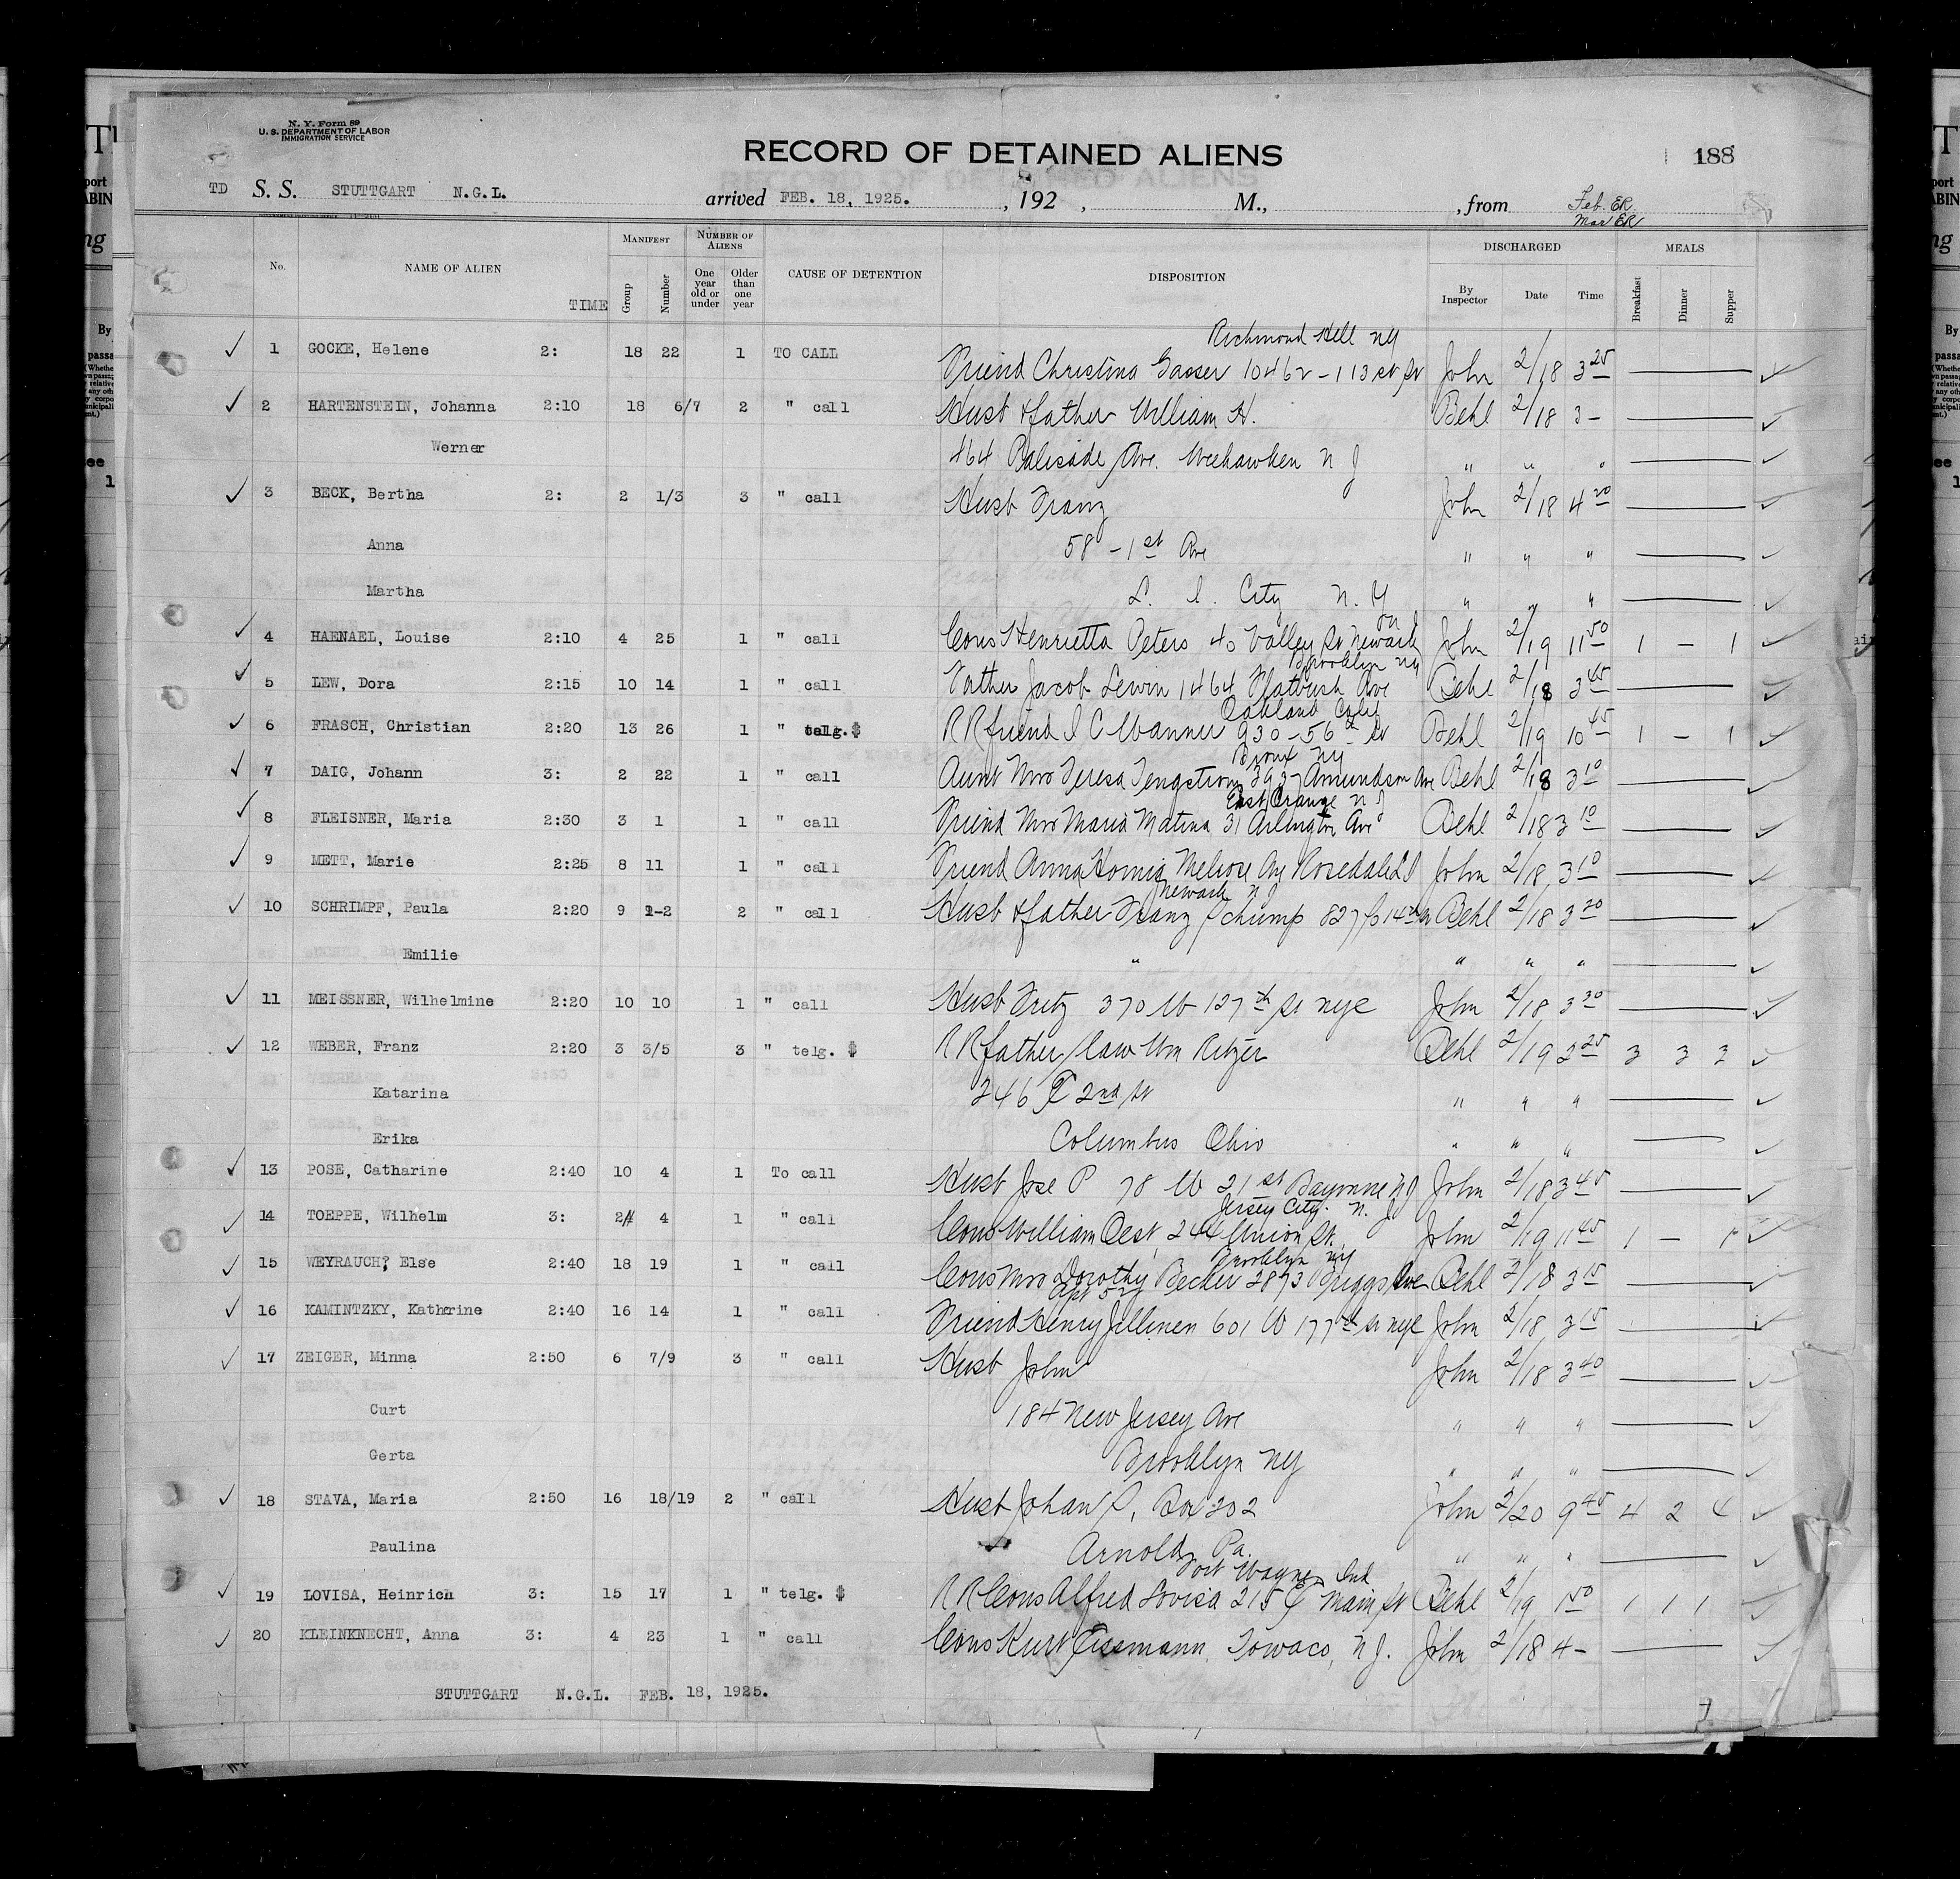 N. Y. Form 89
U. S. DEPARTMENT OF LABOR
IMMIGRATION SERVICE
RECORD OF DETAINED ALIENS 188
TD S. S. STUTTGART N.G.L. arrived FEB. 18, 1925. , 192 , M., , from Feb. ER
Mar ER
No. NAME OF ALIEN TIME MANIFEST Group Number NUMBER OF ALIENS One year old or under Older than one year CAUSE OF DETENTION DISPOSITION DISCHARGED By Inspector Date Time MEALS Breakfast Dinner Supper
Richmond Hill NY
1 GOCKE, Helene 2: 18 22 1 TO CALL Friend Christina Gasser 10462-113 St John 2/18 3 25
2 HARTENSTEIN, Johanna 2:10 18 6/7 2 " call Husb & father William H. Behl 2/18 3 -
Werner 464 Palisade Ave. Weehawken N J " " "
3 BECK, Bertha 2: 2 1/3 3 " call Husb Franz John 2/18 4 20
Anna 58 - 1st Ave " " "
Martha L. I. City N. Y " " "
N J
4 HAENAEL, Louise 2:10 4 25 1 " call Cous Henrietta Peters 40 Valley St Newark John 2/19 11 50 1 - 1
Brooklyn NY
5 LEW, Dora 2:15 10 14 1 " call Father Jacob Lewin 1464 Flatbush Ave Behl 2/18 3 45
Oakland Calif
6 FRASCH, Christian 2:20 13 26 1 " telg. $ RR friend I C Wanner 930-56th St Behl 2/19 10 45 1 - 1
Bronx NY
7 DAIG, Johann 3: 2 22 1 " call Aunt Mrs Teresa Tengstrom 3937 Amundson Ave Behl 2/18 3 10
East Orange N J
8 FLEISNER, Maria 2:30 3 1 1 " call Friend Mrs Maria Matina 31 Arlington Ave Behl 2/18 3 10
9 METT, Marie 2:25 8 11 1 " call Friend Anna Hornig Melrose Ave Rosedale L I John 2/18 3 10
Newark N J
10 SCHRIMPF, Paula 2:20 9 1-2 2 " call Husb & father Franz 827 So 14th St Behl 2/18 3 20
Emilie " " " "
11 MEISSNER, Wilhelmine 2:20 10 10 1 " call Husb Fritz 370 W 127th St NYC John 2/18 3 20
12 WEBER, Franz 2:20 3 3/5 3 " telg. $ RR father/law Wm Ritzer Behl 2/19 2 25 3 3 3
Katarina 246 E 2nd St " " "
Erika Columbus Ohio " " "
13 POSE, Catharine 2:40 10 4 1 To call Husb Jose P 78 W 21st Bayonne N J John 2/18 3 45
Jersey City. N. J
14 TOEPPE, Wilhelm 3: 24 4 1 " call Cous William Oest, 244 Union St. John 2/19 11 45 1 - 1
Brooklyn NY
15 WEYRAUCH? Else 2:40 18 19 1 " call Cous Mrs Dorothy Becker 2873 Briggs Ave Behl 2/18 3 15
Apt 52
16 KAMINTZKY, Katherine 2:40 16 14 1 " call Friend Henry Jillinen 601 W 177th St NYC John 2/18 3 15
17 ZEIGER, Minna 2:50 6 7/9 3 " call Husb John John 2/18 3 40
Curt 184 New Jersey Ave " " "
Gerta Brooklyn NY " " "
18 STAVA, Maria 2:50 16 18/19 2 " call Husb Johan S, Box 202 John 2/20 9 45 4 2 4
Paulina Arnold, Pa. " " "
Fort Wayne Ind
19 LOVISA, Heinrich 3: 15 17 1 " telg. $ RR Cous Alfred Lovisa 215 E Main St Behl 2/19 1 50 1 1 1
20 KLEINKNECHT, Anna 3: 4 23 1 " call Cous Kurt Eissmann, Towaco, N J. John 2/18 4 -
STUTTGART N.G.L. FEB. 18, 1925.
7